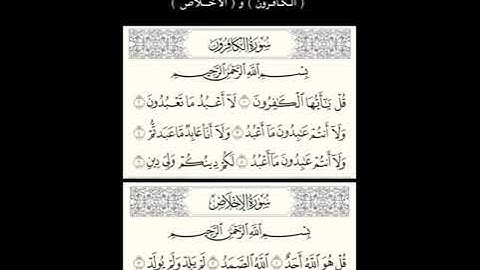 ( الكافرون ) و ( الاخلاص )
سُورَةُ الكَافِرُونَ
بِسْمِ اللَّهِ الرَّحْمَٰنِ الرَّحِيمِ
قُلْ يَٰٓأَيُّهَا ٱلْكَٰفِرُونَ ١ لَآ أَعْبُدُ مَا تَعْبُدُونَ ٢
وَلَآ أَنتُمْ عَٰبِدُونَ مَآ أَعْبُدُ ٣ وَلَآ أَنَا۠ عَابِدٌ مَّا عَبَدتُّمْ ٤
وَلَآ أَنتُمْ عَٰبِدُونَ مَآ أَعْبُدُ ٥ لَكُمْ دِينُكُمْ وَلِيَ دِينِ ٦
سُورَةُ الإِخْلَاصِ
بِسْمِ اللَّهِ الرَّحْمَٰنِ الرَّحِيمِ
قُلْ هُوَ ٱللَّهُ أَحَدٌ ١ ٱللَّهُ ٱلصَّمَدُ ٢ لَمْ يَلِدْ وَلَمْ يُولَدْ ٣